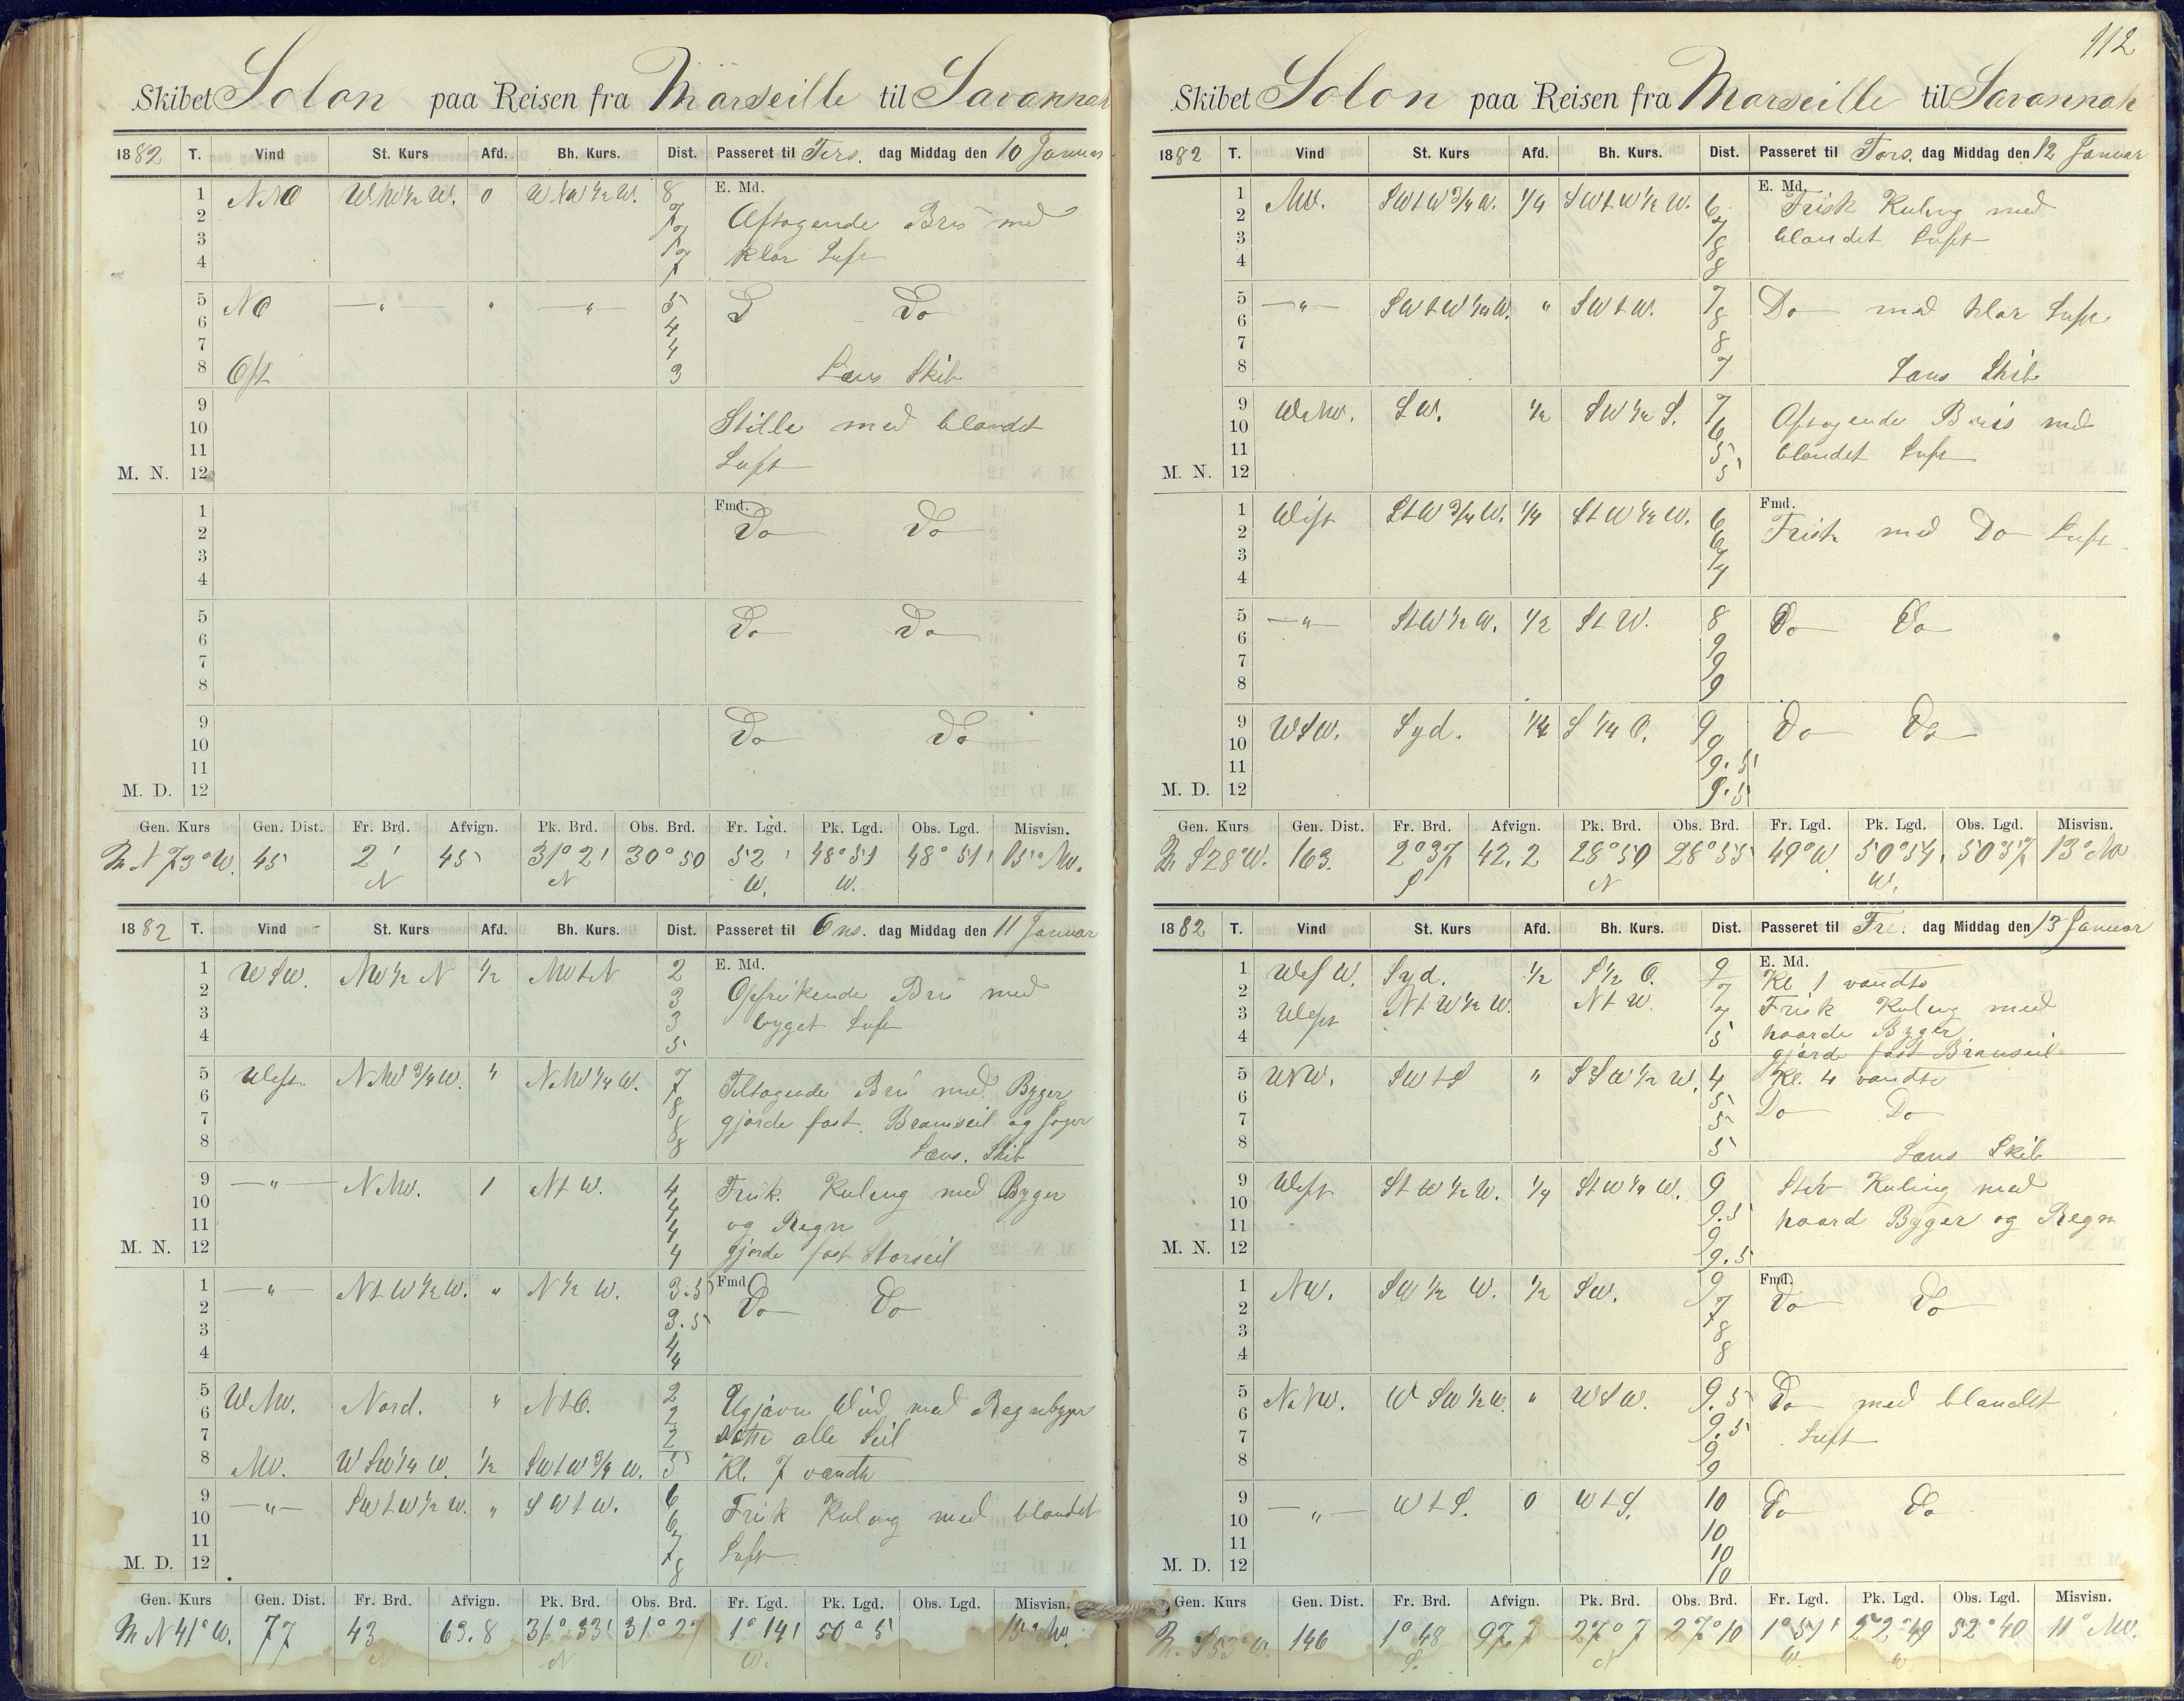 Skibet Solon paa Reisen fra Marseille til Savannah
1882 T. Vind St. Kurs Afd. Bh. Kurs. Dist. Passeret til Tirs. dag Middag den 10 Januar
E. Md.
1 NNO WNW½W. 0 WNW½W. 8
2 7 Aftagende Bris med
3 7 klar Luft
4 7
5 NO —"— " —"— 5 D Do
6 4
7 4
8 Ost 3 Læns Skib
9
10 Stille med blandet
11 Luft
M. N. 12
Fmd.
1
2 Do Do
3
4
5
6 Do Do
7
8
9
10 Do Do
11
M. D. 12
Gen. Kurs Gen. Dist. Fr. Brd. Afvign. Pk. Brd. Obs. Brd. Fr. Lgd. Pk. Lgd. Obs. Lgd. Misvisn.
N 73° W. 45 2' 45 31° 2' 30° 50 52' 48° 51 48° 51' 15° NW.
N N W. W.
1882 T. Vind St. Kurs Afd. Bh. Kurs. Dist. Passeret til Ons. dag Middag den 11 Januar
E. Md.
1 WSW. NW½N ½ NWtN 2
2 3 Opfriskende Bris med
3 3 byget Luft
4 5
5 West. NNW¾W. " NNW¼W. 7 Tiltagende Bris med Byger
6 8 gjorde fast Bramseil og Jager
7 8
8 8 Læns. Skib
9 —"— NNW. 1 NtW. 4 Frisk Kuling med Byger
10 4 og Regn
11 4
M. N. 12 4 gjorde fast Storseil
Fmd.
1 —"— NtW½W. " N½W. 3.5
2 3.5 Do Do
3 4
4 4
5 WNW. Nord. " NtO. 2 Ugjævn Vind med Regnbyger
6 2
7 2 satte alle Seil
8 NW. WSW¼W. ½ SWtW¾W. 5 Kl. 7 vendte
9 —"— SWtW½W. " SWtW. 6
10 6 Frisk Kuling med blandet
11 7
M. D. 12 8 Luft
Gen. Kurs Gen. Dist. Fr. Brd. Afvign. Pk. Brd. Obs. Brd. Fr. Lgd. Pk. Lgd. Obs. Lgd. Misvisn.
N 41° W. 77 43 63.8 31° 33' 31° 27 1° 14' 50° 5' 15° NW.
N N W.
112
Skibet Solon paa Reisen fra Marseille til Savannah
1882 T. Vind St. Kurs Afd. Bh. Kurs. Dist. Passeret til Tors. dag Middag den 12 Januar
E. Md.
1 NW. SWtW¾W. ¼ SWtW½W. 6 Frisk Kuling med
2 7
3 8 blandet Luft
4 8
5 —"— SWtW¼W. " SWtW. 7 Do med klar Luft
6 8
7 8
8 7 Læns Skib
9 WNW. SW. ½ SW½S. 7
10 6 Aftagende Bris med
11 5 blandet Luft
M. N. 12 5
Fmd.
1 West StW¾W. ¼ StW½W. 6
2 6 Frisk med Do Luft
3 7
4 7
5 —"— StW½W. ½ StW. 8 Do Do
6 9
7 9
8 9
9 WSW. Syd. ¼ S¼O. 9 Do Do
10 9
11 9.5
M. D. 12 9.5
Gen. Kurs Gen. Dist. Fr. Brd. Afvign. Pk. Brd. Obs. Brd. Fr. Lgd. Pk. Lgd. Obs. Lgd. Misvisn.
S 28° W. 163. 2° 37 42.2 28° 50 28° 55 49° W. 50° 54' 50 37 13° NW
S N W.
1882 T. Vind St. Kurs Afd. Bh. Kurs. Dist. Passeret til Fre. dag Middag den 13 Januar
E. Md.
1 WSW. Syd. ½ S½O. 9 Kl 1 vendte
2 West NtW½W. NtW. 7 Frisk Kuling med
3 7
4 5 haarde Byger
gjorde fast Bramseil
5 WNW. SWtS " SSW½W. 4 Kl. 4 vendte
6 5 Do Do
7 5
8 5 Læns Skib
9 West StW½W. ¼ StW¼W. 9 Stiv Kuling med
10 9.5 haard Byger og Regn
11 9
M. N. 12 9.5
Fmd.
1 NW. SW½W. ½ SW. 9
2 7 Do Do
3 8
4 8
5 NNW. WSW½W. " WSW. 9.5 Do med blandet
6 9.5 Luft
7 9
8 9
9 —"— WtS. 0 WtS. 10 Do Do
10 10
11 10
M. D. 12 10
Gen. Kurs Gen. Dist. Fr. Brd. Afvign. Pk. Brd. Obs. Brd. Fr. Lgd. Pk. Lgd. Obs. Lgd. Misvisn.
S 53° W. 146 1° 48 97.7 27° 7 27° 10 1° 51' 52° 49 52° 40 11° NW.
S. N W. W